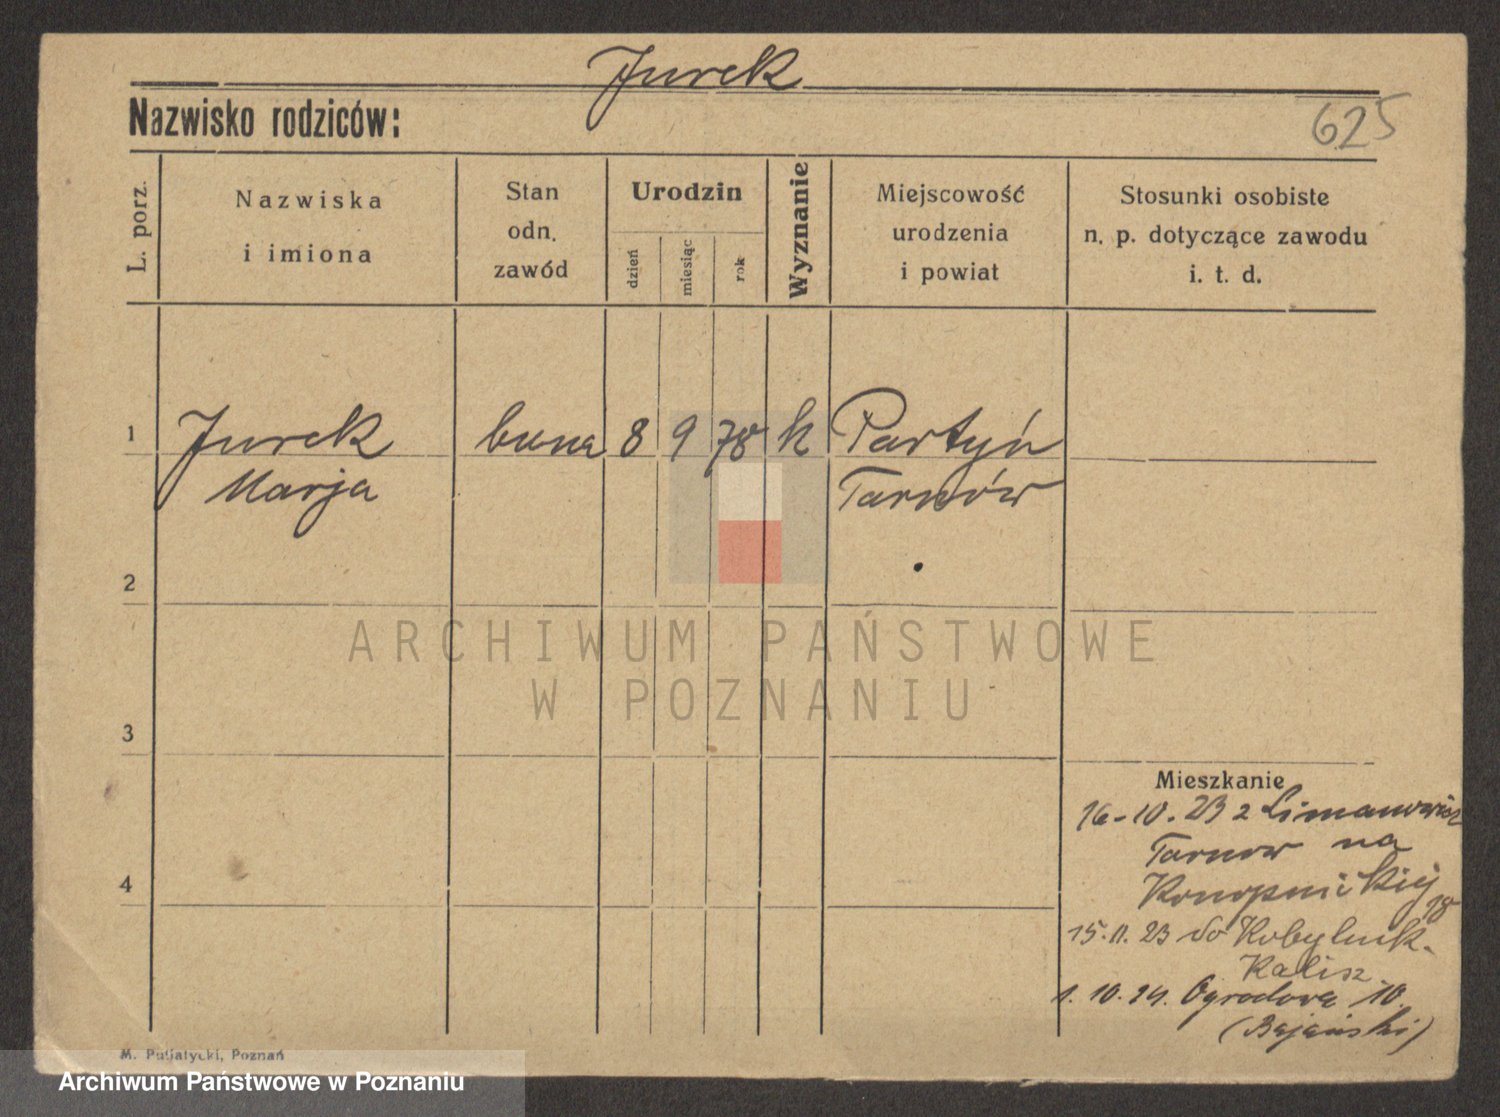 Jurek
Nazwisko rodziców:
625
L. porz.
Nazwiska
i imiona
Stan
odn.
zawód
Urodzin
dzień
miesiąc
rok
Wyznanie
Miejscowość
urodzenia
i powiat
Stosunki osobiste
n. p. dotyczące zawodu
i. t. d.
1
Jurek
Marja
8
9
78
k
Partyń
Tarnów
2
ARCHIWUM PAŃSTWOWE
W POZNANIU
3
Mieszkanie
16-10.23 z
Tarnow na
Konopnickiej
18
4
15.11.23 do Kobylnik-
Kalisz
1.10.24. Ogrodowa 10.
(Bajański)
M. Putiatycki, Poznań
Archiwum Państwowe w Poznaniu